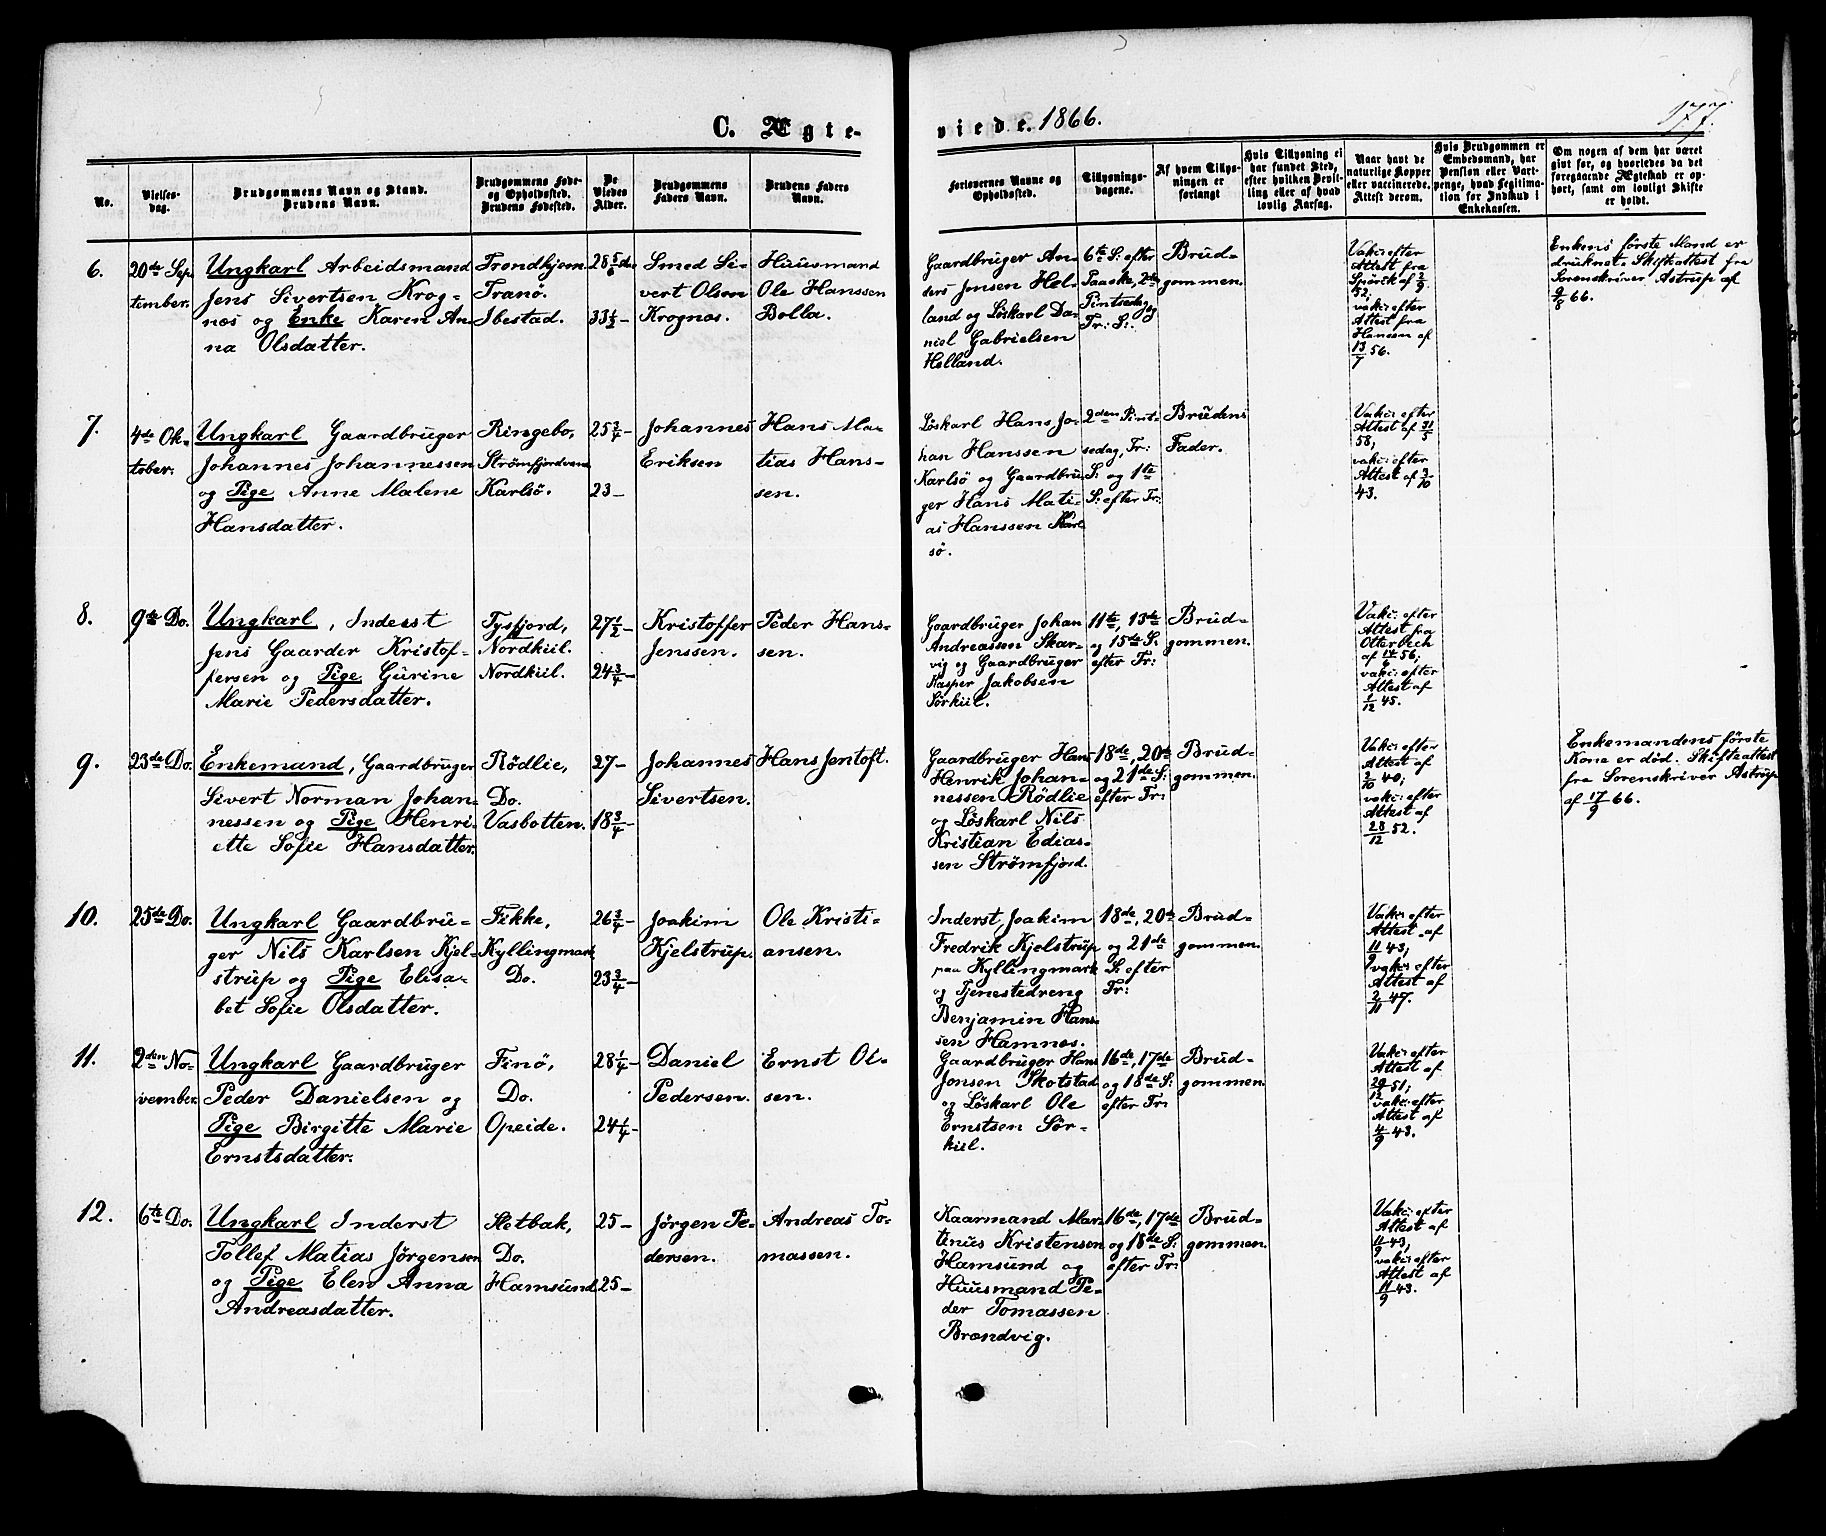 C. Ægte-
viede. 1866.
177.
No.
Vielses-
dag.
Brudgommens Navn og Stand.
Brudens Navn.
Brudgommens Føde-
og Opholdssted.
Brudens Fødested.
De
Viedes
Alder.
Brudgommens
Faders Navn.
Brudens Faders
Navn.
Forlovernes Navne og
Opholdssted.
Tillysnings-
dagene.
Af hvem Tillys-
ningen er
forlangt
Hvis Tillysning ei
har fundet Sted,
efter hvilken Bevil-
ling eller af hvad
lovlig Aarsag.
Naar havt de
naturlige Kopper
eller vaccinerede.
Attest derom.
Hvis Brudgommen er
Embedsmand, har
Pension eller Vart-
penge, hvad Legitima-
tion for Indskud i
Enkekassen.
Om nogen af dem har været
gift før, og hvorledes da det
foregaaende Ægteskab er op-
hørt, samt om lovligt Skifte
er holdt.
6.
20de Sep-
tember.
Ungkarl Arbeidsmand
Jens Sivertsen Krog-
næs og Enke Karen An-
na Olsdatter.
Trondhjem
Tranö.
Ibestad.
28 5/6
33 1/2 -
Smed Si-
vert Olsen
Krognæs.
Huusmand
Ole Hanssen
Bolla.
Gaardbruger An-
ders Jensen Hel-
land og Löskarl Da-
niel Gabrielsen
Helland.
6te S: efter
Paaske, 2den
Pintsedag og
Tr: S:.
Brud-
gommen.
Vak: efter
Attest fra
Spörck af 2/9
52;
vak: efter
Attest fra
Hanssen af
13/7 56.
Enkens første Mand er
druknet. Skifteattest fra
Sorenskriver Astrup af
9/8 66.
7.
4de Ok-
tober.
Ungkarl Gaardbruger
Johannes Johannessen
og Pige Anne Malene
Hansdatter.
Ringebo,
Strømfjordvand
Karlsö.
25 3/4 -
23 -
Johannes
Eriksen
Hans Ma-
tias Hans-
sen.
Löskarl Hans Jo-
han Hanssen
Karlsö og Gaardbru-
ger Hans Mati-
as Hanssen Karl-
sö.
2den Pint-
sedag, Tr:
S: og 1te
S: efter Tr:
Brudens
Fader.
Vak: efter
Attest af 31/5
58;
vak: efter
Attest af 3/10
43.
8.
9de Do.
Ungkarl, Inderst
Jens Gaarder Kristof-
fersen og Pige Gurine
Marie Pedersdatter.
Tysfjord,
Nordkiil.
Nordkiil.
27 1/2 -
24 3/4 -
Kristoffer
Jenssen.
Peder Hans-
sen.
Gaardbruger Johan
Andreassen Skar-
vig og Gaardbruger
Kasper Jakobsen
Sörkiil.
11te, 13de
og 15de S:
efter Tr:
Brud-
gommen.
Vak: efter
Attest fra
Otterbech
af 14/6 56;
vak: efter
Attest af
1/12 45.
9.
23de Do.
Enkemand, Gaardbruger
Sivert Norman Johan-
nessen og Pige Henri-
ette Sofie Hansdatter.
Rödlie,
Do.
Vasbotten.
27 -
18 3/4 -
Johannes
Sivertsen.
Hans Jentoft.
Gaardbruger Hans
Henrik Johan-
nessen Rödlie
og Löskarl Nils
Kristian Edias-
sen Strømfjord.
18de, 20de
og 21de S:
efter Tr:
Brud-
gommen.
Vak: efter
Attest af
2/10 40;
vak: efter
Attest af
28/12 52.
Enkemandens første
Kone er död. Skifteattest
fra Sorenskriver Astrup
af 17/9 66.
10.
25de Do.
Ungkarl Gaardbru-
ger Nils Karlsen Kjel-
strup og Pige Elisa-
bet Sofie Olsdatter.
Fikke,
Kyllingmark
Do.
26 3/4 -
23 3/4 -
Joakim
Kjelstrup.
Ole Kristi-
ansen.
Inderst Joakim
Fredrik Kjelstrup
paa Kyllingmark
og Tjenestedreng
Benjamin Hans-
sen Hamnes.
18de, 20de
og 21de
S: efter
Tr:
Brud-
gommen.
Vak: efter
Attest af
11/9 43;
vak: efter
Attest af
2/11 47.
11.
2den No-
vember.
Ungkarl Gaardbruger
Peder Danielsen og
Pige Birgitte Marie
Ernstsdatter.
Finö,
Do.
Opeide.
28 1/4 -
24 1/4 -
Daniel
Pedersen.
Ernst Ol-
sen.
Gaardbruger Hans
Jonsen Skotstad
og Löskarl Ole
Ernstsen Sör-
kiil.
16de, 17de
og 18de S:
efter Tr:
Brud-
gommen.
Vak: efter
Attest af
29/12 51;
vak: efter
Attest af
4/9 43.
12.
6te Do.
Ungkarl Inderst
Tollef Matias Jørgensen
og Pige Elen Anna
Andreasdatter.
Sletbak,
Do.
Hamsund
25 -
25 -
Jørgen Pe-
dersen.
Andreas To-
massen.
Kaarmand Mar-
tinus Kristensen
Hamsund og
Huusmand Pe-
der Tomassen
Brændvig.
16de, 17de
og 18de S:
efter Tr:
Brud-
gommen.
Vak: efter
Attest af
11/9 43;
vak: efter
Attest af
11/9 43.